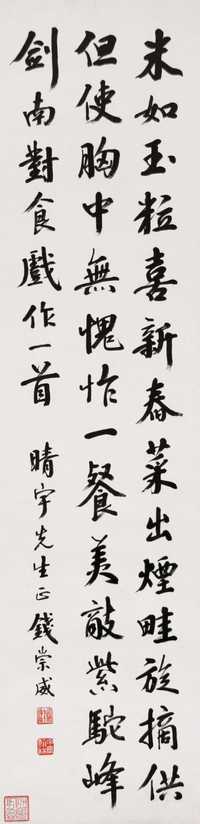 米如玉粒喜新舂菜出煙畦旋摘供
但使胸中無愧怍一餐美敵紫駝峰
劍南對食戲作一首
晴宇先生正錢崇威